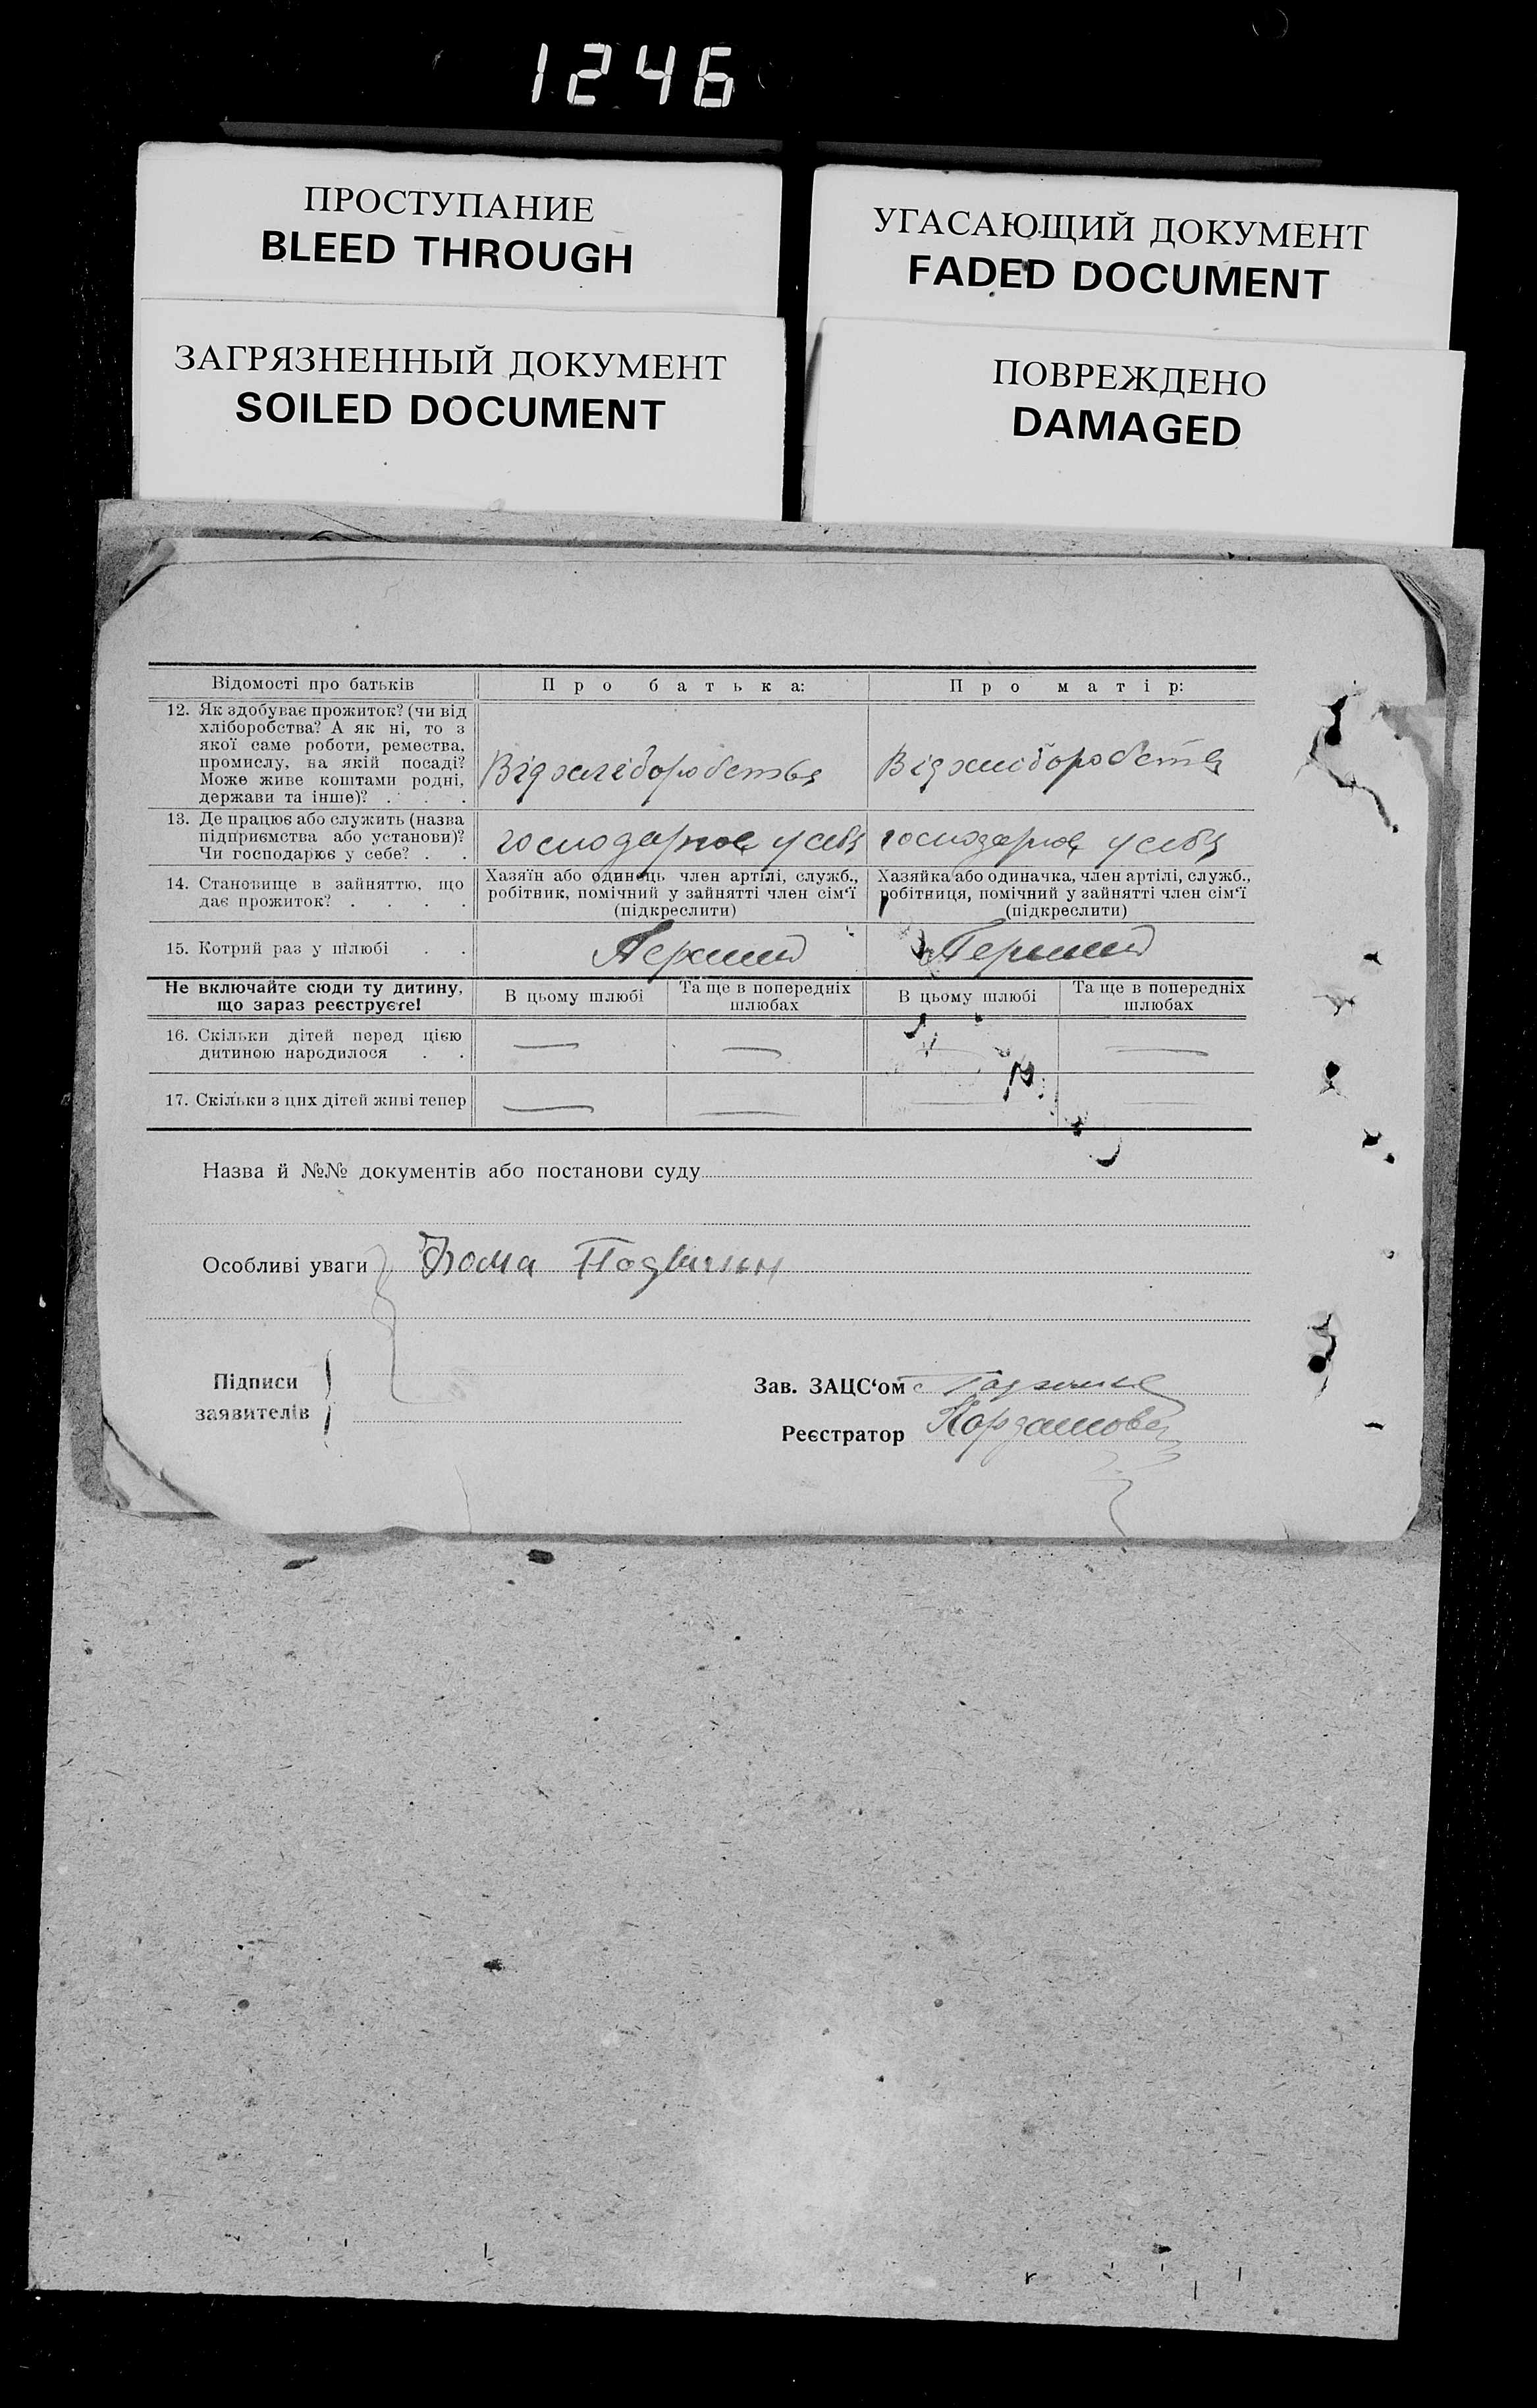 1246
ПРОСТУПАНИЕ
BLEED THROUGH
УГАСАЮЩИЙ ДОКУМЕНТ
FADED DOCUMENT
ЗАГРЯЗНЕННЫЙ ДОКУМЕНТ
SOILED DOCUMENT
ПОВРЕЖДЕНО
DAMAGED
Відомості про батьків
Про батька:
Про матір:
12. Як здобуває прожиток? (чи від
хліборобства? А як ні, то з
якої саме роботи, ремества,
промислу, на якій посаді?
Може живе коштами родні,
держави та інше)? . . .
Від хліборобства
Від хліборобства
13. Де працює або служить (назва
підприємства або установи)?
Чи господарює у себе? . .
господарює у себя
господарює у себя
14. Становище в зайняттю, що
дає прожиток? . . . .
Хазяїн або одинець член артілі, служб.,
робітник, помічний у зайнятті член сім'ї
(підкреслити)
Хазяйка або одиначка, член артілі, служб.,
робітниця, помічний у зайнятті член сім'ї
(підкреслити)
15. Котрий раз у шлюбі . .
Перший
Перший
Не включайте сюди ту дитину,
що зараз реєструєте!
В цьому шлюбі
Та ще в попередніх
шлюбах
В цьому шлюбі
Та ще в попередніх
шлюбах
16. Скільки дітей перед цією
дитиною народилося . .
— — —
17. Скільки з цих дітей живі тепер
— — — —
Назва й №№ документів або постанови суду
Особливі уваги Фома
Підписи
заявителів
Зав. ЗАЦС‘ом
Реєстратор